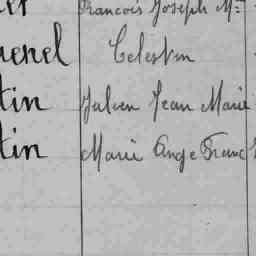 Francois Joseph M
Celestin
tin Julien Jean Marie
tin Marie Ange Franc